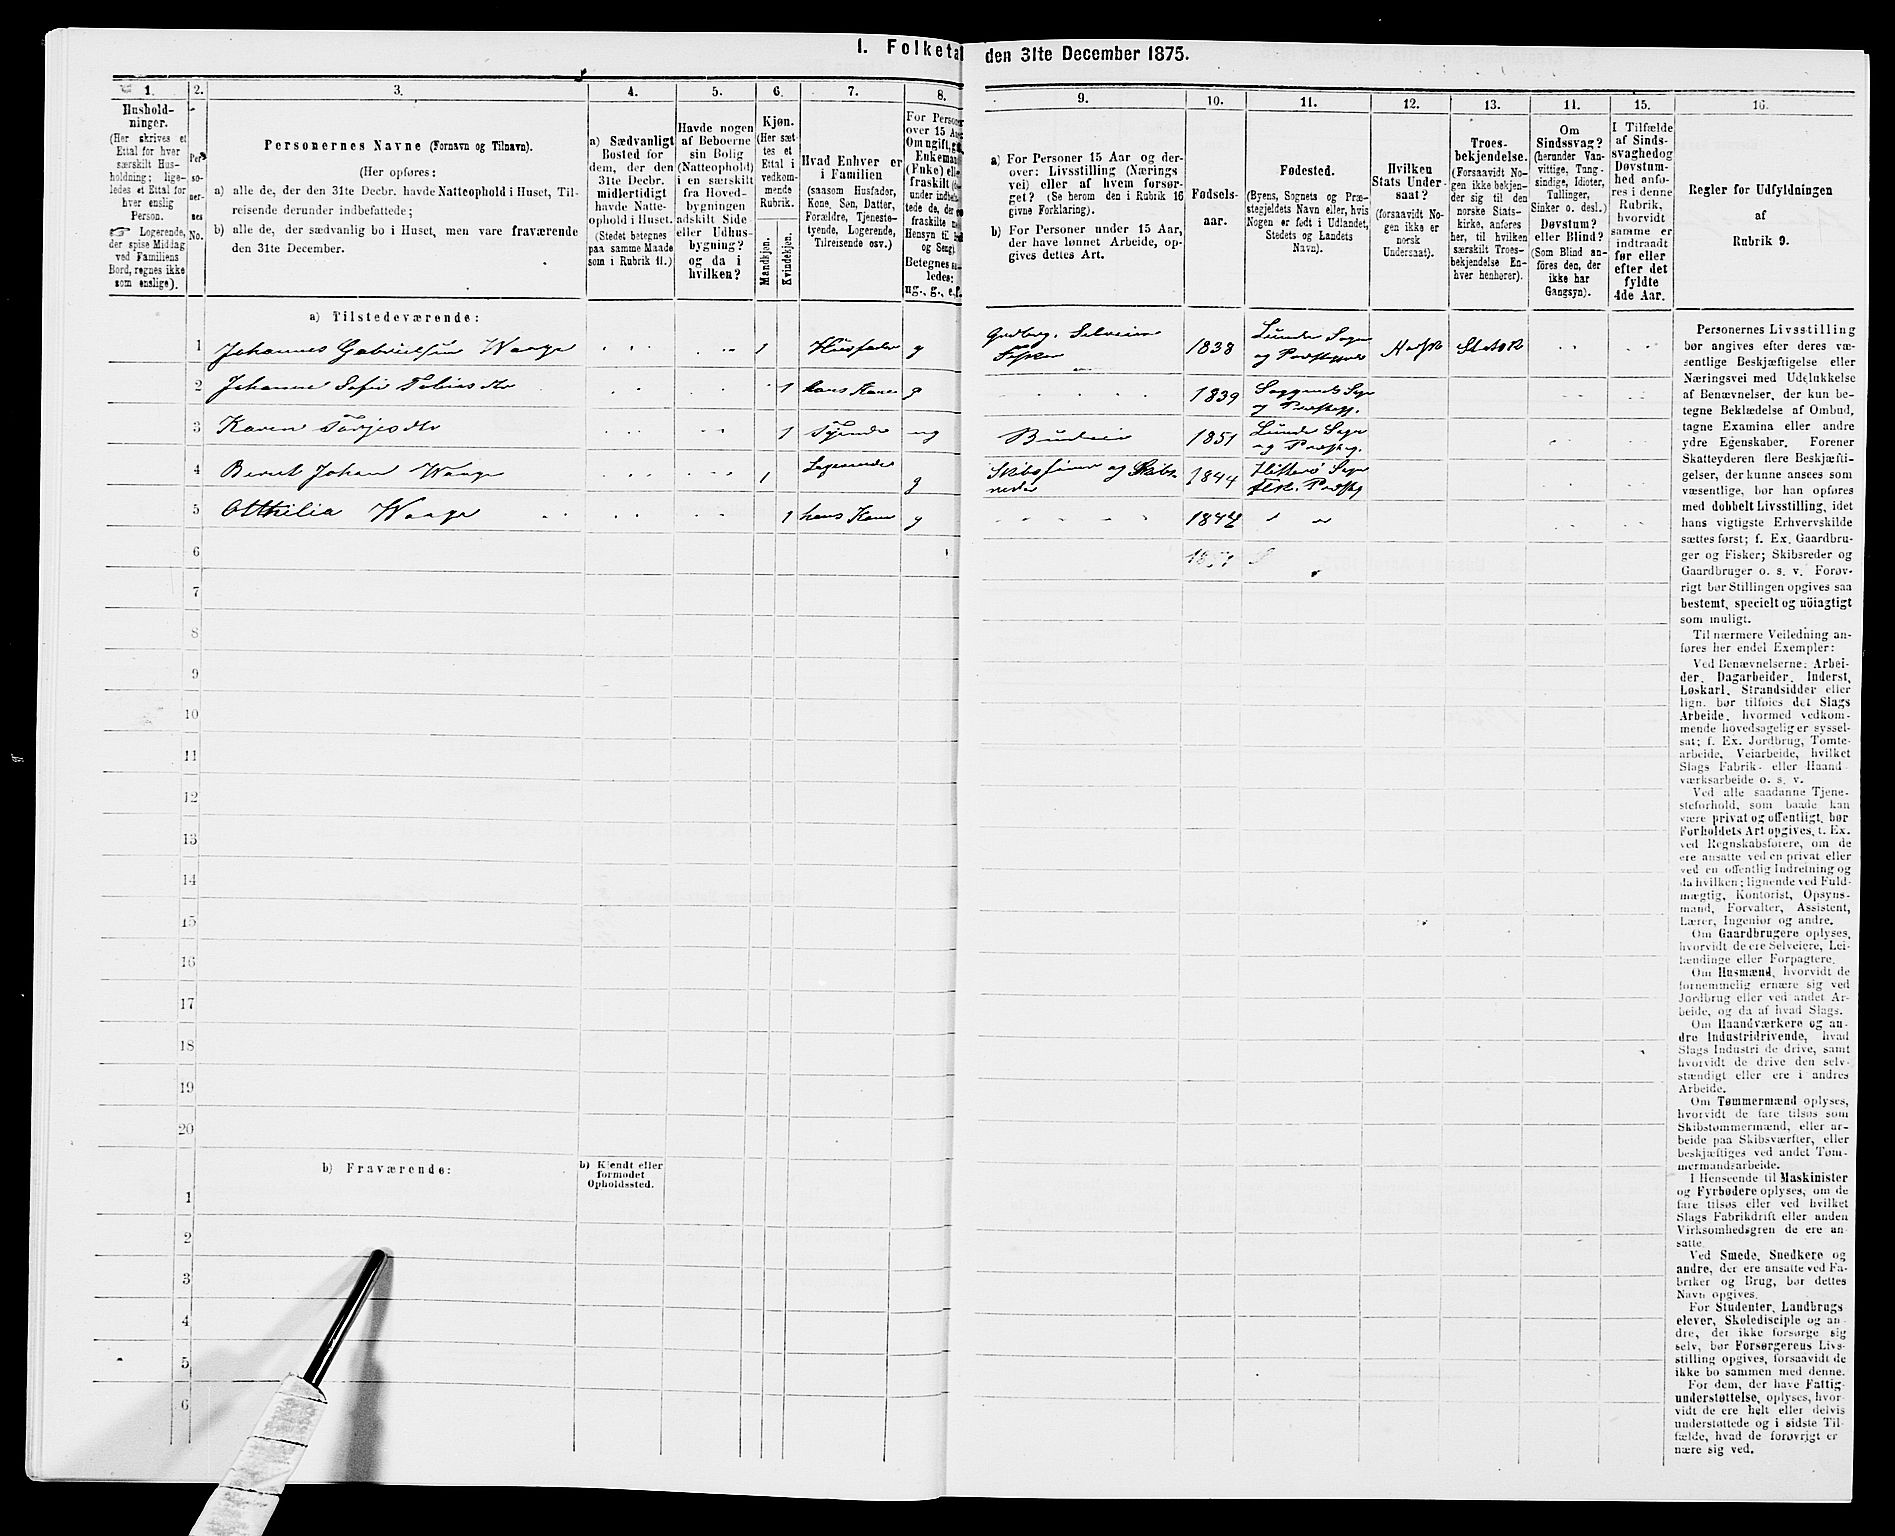 1. Folketal den 31te December 1875.
1. 2. 3. 4. 5. 6. 7. 8. 9. 10. 11. 12. 13. 14. 15. 16.
Hushold-
ninger.
(Her skrives et
Ettal for hver
særskilt Hus-
holdning; lige-
ledes et Ettal for
hver enslig
Person.
Logerende,
der spise Middag
ved Familiens
Bord, regnes ikke
som enslige).
Per-
so-
ner-
nes
No.
Personernes Navne (Fornavn og Tilnavn).
(Her opføres:
a) alle de, der den 31te Decbr. havde Natteophold i Huset, Til-
reisende derunder indbefattede;
b) alle de, der sædvanlig bo i Huset, men vare fraværende
den 31te December.
a) Sædvanligt
Bosted for
dem, der den
31te Decbr.
midlertidigt
havde Natte-
ophold i Huset.
(Stedet betegnes
paa samme Maade
som i Rubrik 11.)
Havde nogen
af Beboerne
sin Bolig
(Natteophold)
i en særskilt
fra Hoved-
bygningen
adskilt Side-
eller Udhus-
bygning?
og da i
hvilken?
Kjøn.
(Her sæt-
tes et
Ettal i
vedkom-
mende
Rubrik.
Mandkjøn.
Kvindekjøn.
Hvad Enhver er
i Familien
(saasom Husfader,
Kone, Søn, Datter,
Forældre, Tjeneste-
tyende, Logerende,
Tilreisende osv.)
For Personer
over 15 Aar
Om ugift, gift,
Enkemand
(Enke) eller
fraskilt
Betegnes saa-
ledes:
ug., g., e., f.
a) For Personer 15 Aar og der-
over: Livsstilling (Nærings-
vei) eller af hvem forsør-
get? (Se herom den i Rubrik 16
givne Forklaring).
b) For Personer under 15 Aar,
der have lønnet Arbeide, op-
gives dettes Art.
Fødsels-
aar.
Fødested.
(Byens, Sognets og Præ-
stegjeldets Navn eller, hvis
Nogen er født i Udlandet,
Stedets og Landets
Navn).
Hvilken
Stats Under-
saat?
(forsaavidt No-
gen ikke er
norsk
Undersaat).
Troes-
bekjendelse.
(Forsaavidt No-
gen ikke bekjen-
der sig til den
norske Stats-
kirke, anføres
her, til hvilken
særskilt Troes-
bekjendelse En-
hver henhører).
Om
Sindssvag?
(herunder Van-
vittige, Tung-
sindige, Idioter,
Tullinger,
Sinker o. desl.)
Døvstum?
eller Blind?
(Som Blind an-
føres den, der
ikke har
Gangsyn).
I Tilfælde
af Sinds-
svaghed og
Døvstum-
hed anfø-
res i denne
Rubrik,
hvorvidt
samme er
indtraadt
før eller
efter det
fyldte
4de Aar.
Regler for Udfyldningen
af
Rubrik 9.
a) Tilstedeværende:
1 Johannes Gabrielsen Waage 1 Husfader g Gaardbrg. Selveier Fisker 1838 Lunde Sogn og Præstegjeld Norsk Statsk
2 Johanne Sofie Tobiasdtr 1 hans Kone g 1839 Soggendal Sogn og Præstegj.
3 Karen Torjesdtr 1 Tjende ug Budeie 1851 Lunde Sogn og Præsteg.
4 Berent Johan Waage 1 Logerende g Skibsfører og Skibsreder 1844 Hitterø Sogn Flk. Præsteg
5 Otthilia Waage 1 hans Kone g 1842
6
7
8
9
10
11
12
13
14
15
16
17
18
19
20
b) Fraværende:
b) Kjendt eller
formodet
Opholdssted.
1
2
3
4
5
6
Personernes Livsstilling
bør angives efter deres væ-
sentlige Beskjæftigelse eller
Næringsvei med Udelukkelse
af Benævnelser, der kun be-
tegne Beklædelse af Ombud,
tagne Examina eller andre
ydre Egenskaber. Forener
Skatteyderen flere Beskjæfti-
gelser, der kunne ansees som
væsentlige, bør han opføres
med dobbelt Livsstilling, idet
hans vigtigste Erhvervskilde
sættes først; f. Ex. Gaardbru-
ger og Fisker; Skibsreder og
Gaardbruger o. s. v. Forøv-
rigt bør Stillingen opgives saa
bestemt, specielt og nöiagtigt
som muligt.
Til nærmere Veiledning an-
føres her endel Exempler:
Ved Benævnelserne: Arbei-
der, Dagarbeider, Inderst,
Løskarl, Strandsidder eller
lign. bør tilføies det Slags
Arbeide, hvormed vedkom-
mende hovedsagelig er syssel-
sat; f. Ex. Jordbrug, Tomte-
arbeide, Veiarbeide, hvilket
Slags Fabrik- eller Haand-
værksarbeide o. s. v.
Ved alle saadanne Tjene-
steforhold, som baade kan
være privat og offentligt, bør
Forholdets Art opgives, t. Ex.
ved Regnskabsførere, om de
ere ansatte ved en privat eller
ved en offentlig Indretning og
da hvilken; lignende ved Fuld-
mægtig, Kontorist, Opsyns-
mand, Forvalter, Assistent,
Lærer, Ingeniør og andre.
Om Gaardbrugere oplyses,
hvorvidt de ere Selveiere, Lei-
lændinge eller Forpagtere.
Om Husmænd, hvorvidt de
fornemmelig ernære sig ved
Jordbrug eller ved andet Ar-
beide, og da af hvad Slags.
Om Haandværkere og an-
dre Industridrivende, hvad
Slags Industri de drive, samt
hvorvidt de drive den selv-
stændigt eller ere i andres
Arbeide.
Om Tømmermænd oplyses,
hvorvidt de fare tilsøs som
Skibstømmermænd, eller ar-
beide paa Skibsværfter, eller
beskjæftiges ved andet Tøm-
mermandsarbeide.
I Henseende til Maskinister
og Fyrbødere oplyses, om de
fare tilsøs eller ved hvilket
Slags Fabrikdrift eller anden
Virksomhedsgren de ere an-
satte.
Ved Smede, Snedkere og
andre, der ere ansatte ved Fa-
briker og Brug, bør dettes
Navn opgives.
For Studenter, Landbrugs-
elever, Skoledisciple og an-
dre, der ikke forsørge sig
selv, bør Forsørgerens Livs-
stilling opgives, forsaavidt de
ikke bo sammen med denne.
For dem, der have Fattig-
understøttelse, oplyses, hvor-
vidt de ere helt eller delvis
understøttede og i sidste Til-
fælde, hvad de forøvrigt er-
nære sig ved.